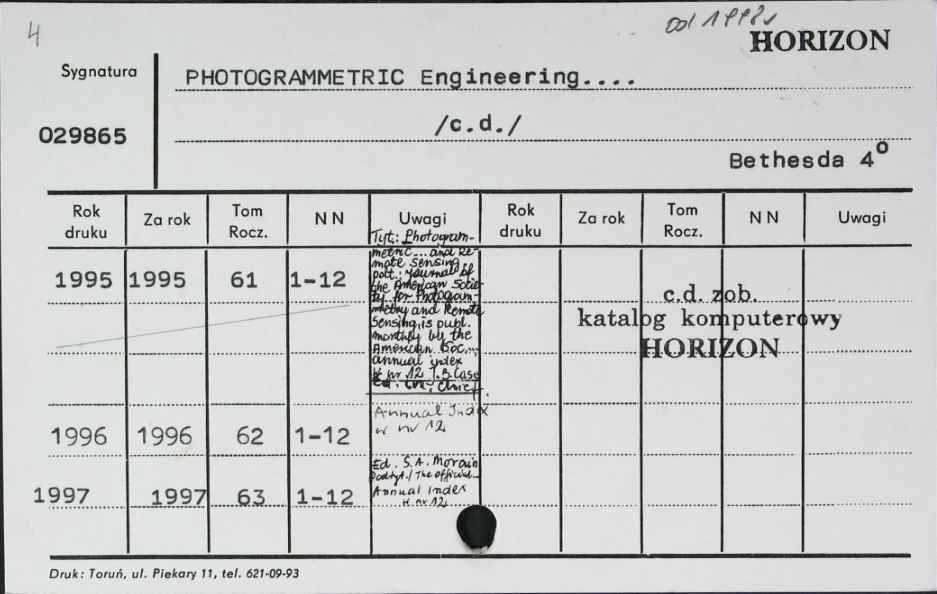 4
od 1998r
HORIZON
Sygnatura
PHOTOGRAMMETRIC Engineering....
029865
/c.d./
Bethesda 4º
Rok druku Za rok Tom Rocz. NN Uwagi Rok druku Za rok Tom Rocz. NN Uwagi
1995 1995 61 1-12
Tyt.: Photogram-
metric... and Re-
mote Sensing
podt.: Journal of
the American Socie-
ty for Photogram-
metry and Remote
Sensing, is publ.
monthly by the
American Soc...
annual index
w nr 12 J.B. Case
Ed. in Chief.
c.d. zob.
katalog komputerowy
HORIZON
1996 1996 62 1-12
Annual Index
w nr 12
1997 1997 63 1-12
Ed. S.A. Morain
Podtyt./ The official...
Annual Index
w nr 12
Druk: Toruń, ul. Piekary 11, tel. 621-09-93